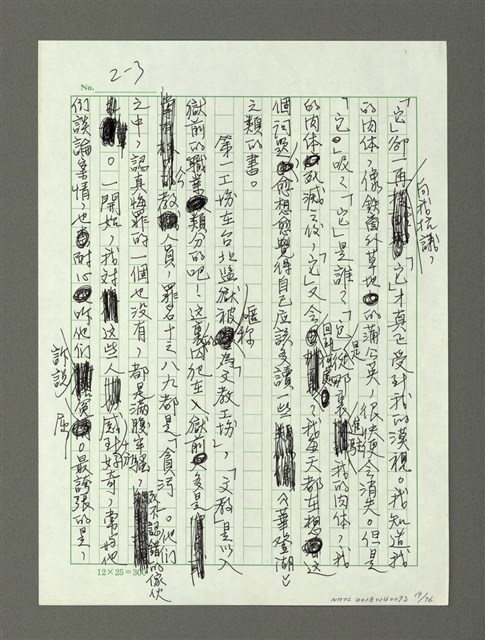 No.
2-3
「它」卻一再向我抗議,「它」才真正受到我的漠視。我知道我
的肉体,像鐵窗外草地的蒲公英,很快便會消失。但是
「它」呢?「它」是誰?「它」是從那裏進駐我的肉体,我
的肉体死滅之後,「它」又會回到哪裏?我每天都在想這
個問題,愈想愈覺得自己應該多讀一些《華登湖》
之類的書。
第一工場在台北監獄被暱称為「文教工場」,「文教」是以入
獄前的職業分類的吧!這裏囚犯在入獄前多是
公教人員,罪名十之八九都是「貪污」。他們
之中,認真悔罪的一個也沒有,都是滿腹牢騷,死不認錯的傢伙
。一開始,我对這些人感到好奇,常與他
們談論案情,也耐心听他們訴說冤屈。最誇張的是,
12×25=300
NMTL 20180140073 19/76